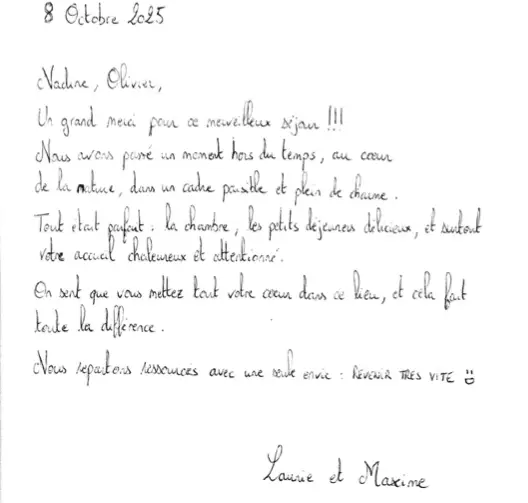 8 Octobre 2025
Nadine, Olivier,
Un grand merci pour ce merveilleux séjour !!!
Nous avons passé un moment hors du temps, au cœur
de la nature, dans un cadre paisible et plein de charme.
Tout était parfait : la chambre, les petits déjeuners délicieux, et surtout
votre accueil chaleureux et attentionné.
On sent que vous mettez tout votre cœur dans ce lieu, et cela fait
toute la différence.
Nous repartons ressourcés avec une seule envie : REVENIR TRES VITE 😃
Laurie et Maxime